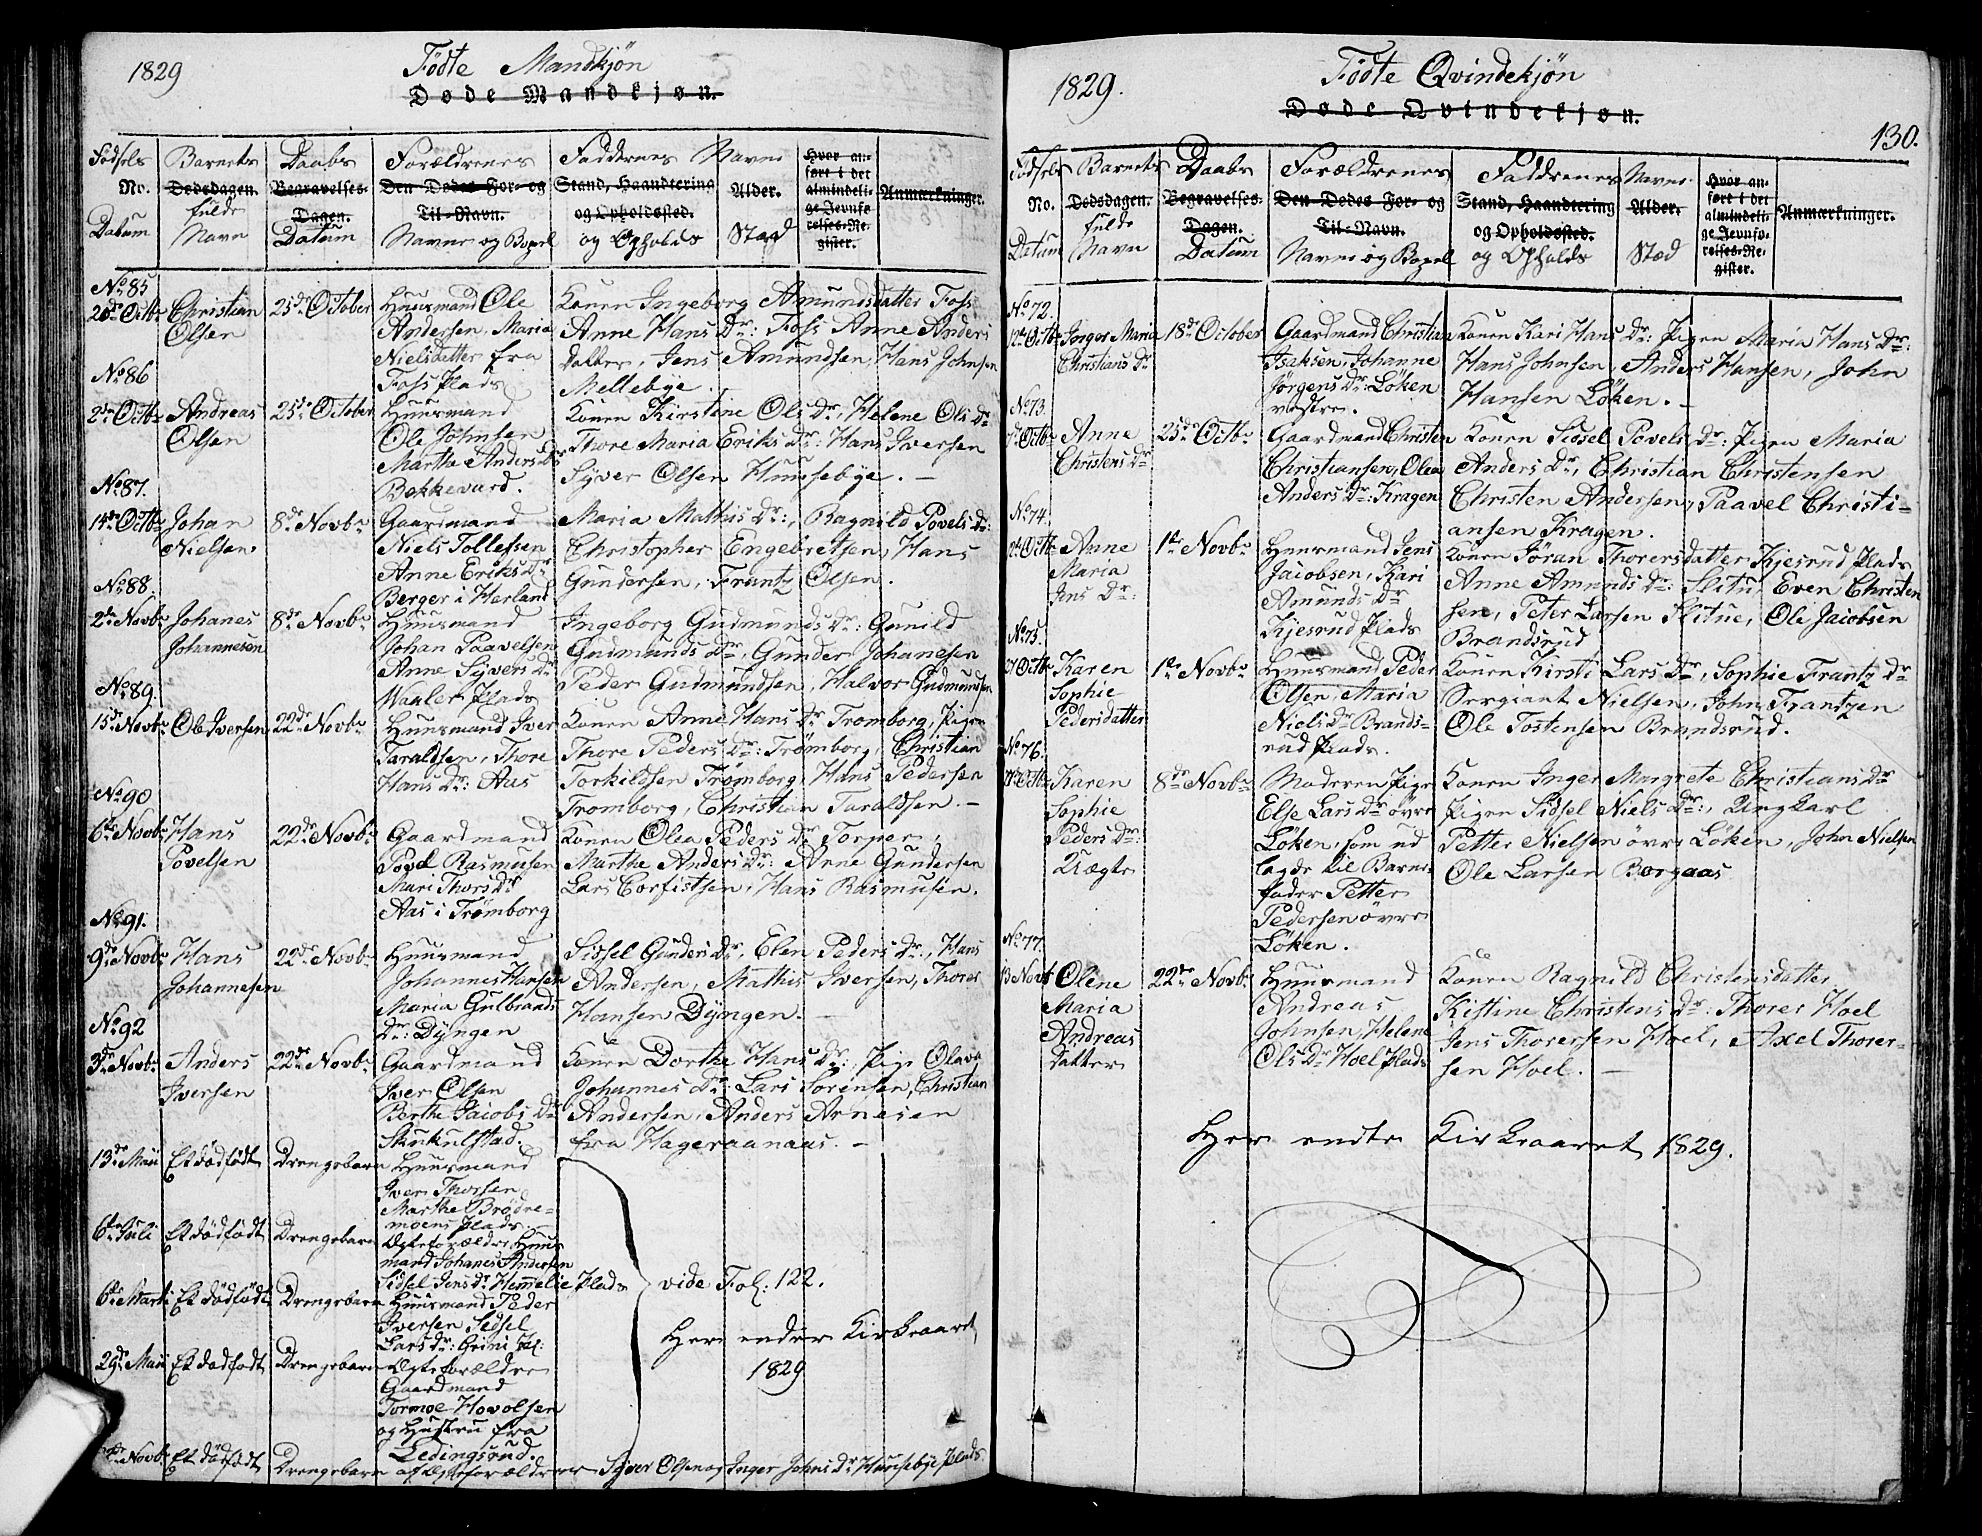 1829
Födte Mandkjön
Døde Mandkjøn.
Födsels No. Datum
Barnets Dødsdagen. fulde Navn
Daabs Begravelses-Dagen. Datum
Forældrenes Den Dødes For- og Til-Navn. Navne og Bopæl
Faddernes Navne Stand, Haandtering og Opholdssted. og Opholds
Alder. Stæd
Hvor an-ført i det almindeli-ge Jevnfø-relses-Re-gister.
Anmærkninger.
No 85
20de Octbr Christian Olsen
25de October
Huusmand Ole
Andersen, Maria
Nielsdatter fra
Foss Plads
Konen Ingeborg Amundsdatter Foss
Anne Hans Dr: Foss Anne Anders
Datter, Jens Amundsen, Hans Johnsen
Mellebye.
No 86
2de Octbr Andreas Olsen
25de October
Huusmand
Ole Johnsen
Marthe Anders Dr
Bekkevard.
Konen Kirstine Ols Dr, Helene Ols Dr
Thore Maria Eriks Dr: Hans Iversen
Syver Olsen Huusebye. —
No 87.
14de Octbr Johan Nielsen
8de Novbr
Gaardmand
Niels Tollefsen
Anne Eriks Dr
Berger i Herland
Maria Mathis Dr:, Ragnild Povels Dr:
Christopher Engebretsen, Hans
Gundersen, Frantz Olsen.
No 88.
2de Novbr Johanes Johannesen
8de Novbr
Huusmand
Johan Paavelsen
Anne Syvers Dr
Waaler Plads
Ingeborg Gudmunds Dr: Gunild
Gudmunds Dr, Gunder Johanesen
Peder Gudmundsen, Halvor Gudmundsen
No 89.
15de Novbr Ole Iversen
22de Novbr
Huusmand Iver
Taraldsen, Thore
Hans Dr: Aas
Konen Anne Hans Dr Tromborg, Pigen
Thore Peders Dr: Trömborg, Christian
Torkildsen Trömborg, Hans Pedersen
Tromborg, Christian Taraldsen. —
No 90
6te Novbr Hans Povelsen
22de Novbr
Gaardmand
Povel Rasmusen
Mari Thors Dr
Aas i Trömborg
Konen Olea Peders Dr Torper,
Marthe Anders Dr: Anne Gundersen
Lars Corfistsen, Hans Rasmusen.
No 91.
9de Novbr Hans Johannesen
22de Novbr
Huusmand
Johannes Hansen
Maria Gulbrands
Dr: Dÿngen
Sidsel Gunders Dr, Elen Peders Dr, Hans
Andersen, Mathis Iversen, Thores
Hansen Dÿngen. —
No 92
3de Novbr Anders Iversen
22de Novbr
Gaardmand
Iver Olsen
Berthe Jacobs Dr
Skukulstad.
Konen Dorthe Hans Dr: Pige Olava
Johannes Dr: Lars Sörensen, Christian
Andersen, Anders Arnesen
fra Hageraanaas. —
13de Maii Et dödfödt Drengebarn
Huusmand
Iver Thorsen
Marthe Brödre-
moens Plads. —
6te Juli Et dödfödt Drengebarn
Ægteforældre Huus
mand Johanes Andersen
Sidsel Jens Dr Hemmelie Plads
6te Marti Et dödfödt Drengebarn
Huusmand Peder
Iversen Sedsel
Lars Dr: Grini Pl:
29de Maii Et dödfödt Drengebarn
Ægteforældre
Gaardmand
Tormoe Hovolsen
og Hustru fra
Ledingsrud.
vide Fol: 122.
Her ender Kirkeaaret
1829
Novbr Et dödfödt Drengebarn af Ægteforældrene Syver Olsen og Inger Johns Dr Huusebye Plads
1829.
Födte Qvindekjön
Døde Qvindekjøn.
130.
Födsels No. Datum
Barnets Dødsdagen. fulde Navn
Daabs Begravelses-Dagen. Datum
Forældrenes Den Dødes For- og Til-Navn. Navne og Bopæl
Faddrenes Navne Stand, Haandtering og Opholdssted. og Opholds
Alder. Stæd
Hvor an-ført i det almindeli-ge Jevnfø-relses-Re-gister.
Anmærkninger.
No 72.
12te Octbr Inger Maria Christians Dr
18de October
Gaardmand Christian
Isaksen, Johanne
Jörgens Dr: Löken
vestre.
Konen Kari Hans Dr: Pigen Maria Hans Dr:
Hans Johnsen, Anders Hansen, John
Hansen Löken. —
No 73.
7de Octbr Anne Christens Dr
25de Octbr
Gaardmand Christen
Christiansen, Olea
Anders Dr: Kragen
Konen Sidsel Povels Dr: Pigen Maria
Anders Dr, Christian Christensen
Christen Andersen, Paavel Christi-
ansen Kragen.
No 74.
Octbr Anne Maria Jens Dr:
1te Novbr
Huusmand Jens
Jacobsen, Kari
Amunds Dr
Kjesrud Plads
Konen Jöran Thorersdatter Kjesrud Plads
Anne Amunds Dr: Slitu, Even Christen
sen, Peter Larsen Slitue, Ole Jacobsen
Brandsrud
No 75.
27 Octbr Karen Sophie Pedersdatter
1te Novbr
Huusmand Peder
Olsen, Maria
Niels Dr Brands-
rud Plads.
Konen Kirsti Lars Dr, Sophie Frantz Dr
Sergiant Nielsen, John Frantzen
Ole Tostensen Brandsrud.
No 76.
Octbr Karen Sophie Peders Dr: Uægte
8de Novbr
Moderen Pige
Else Lars Dr övre
Löken, som ud
lagde til Barne-
fader Petter
Pedersen övre
Löken.
Konen Inger Margrete Christians Dr
Pigen Sidsel Niels Dr:, Ungkarl
Petter Nielsen övre Löken, John Nielsen
Ole Larsen Borgaas
No 77.
13 Novbr Olene Maria Andreas Datter
22de Novbr
Huusmand
Andreas
Johnsen, Helene
Ols Dr Hoel Plads
Konen Ragnild Christensdatter
Kistine Christens Dr: Thores Hoel
Jens Thoresen Hoel, Axel Thorer-
sen Hoel. —
Her endte Kirkeaaret 1829.